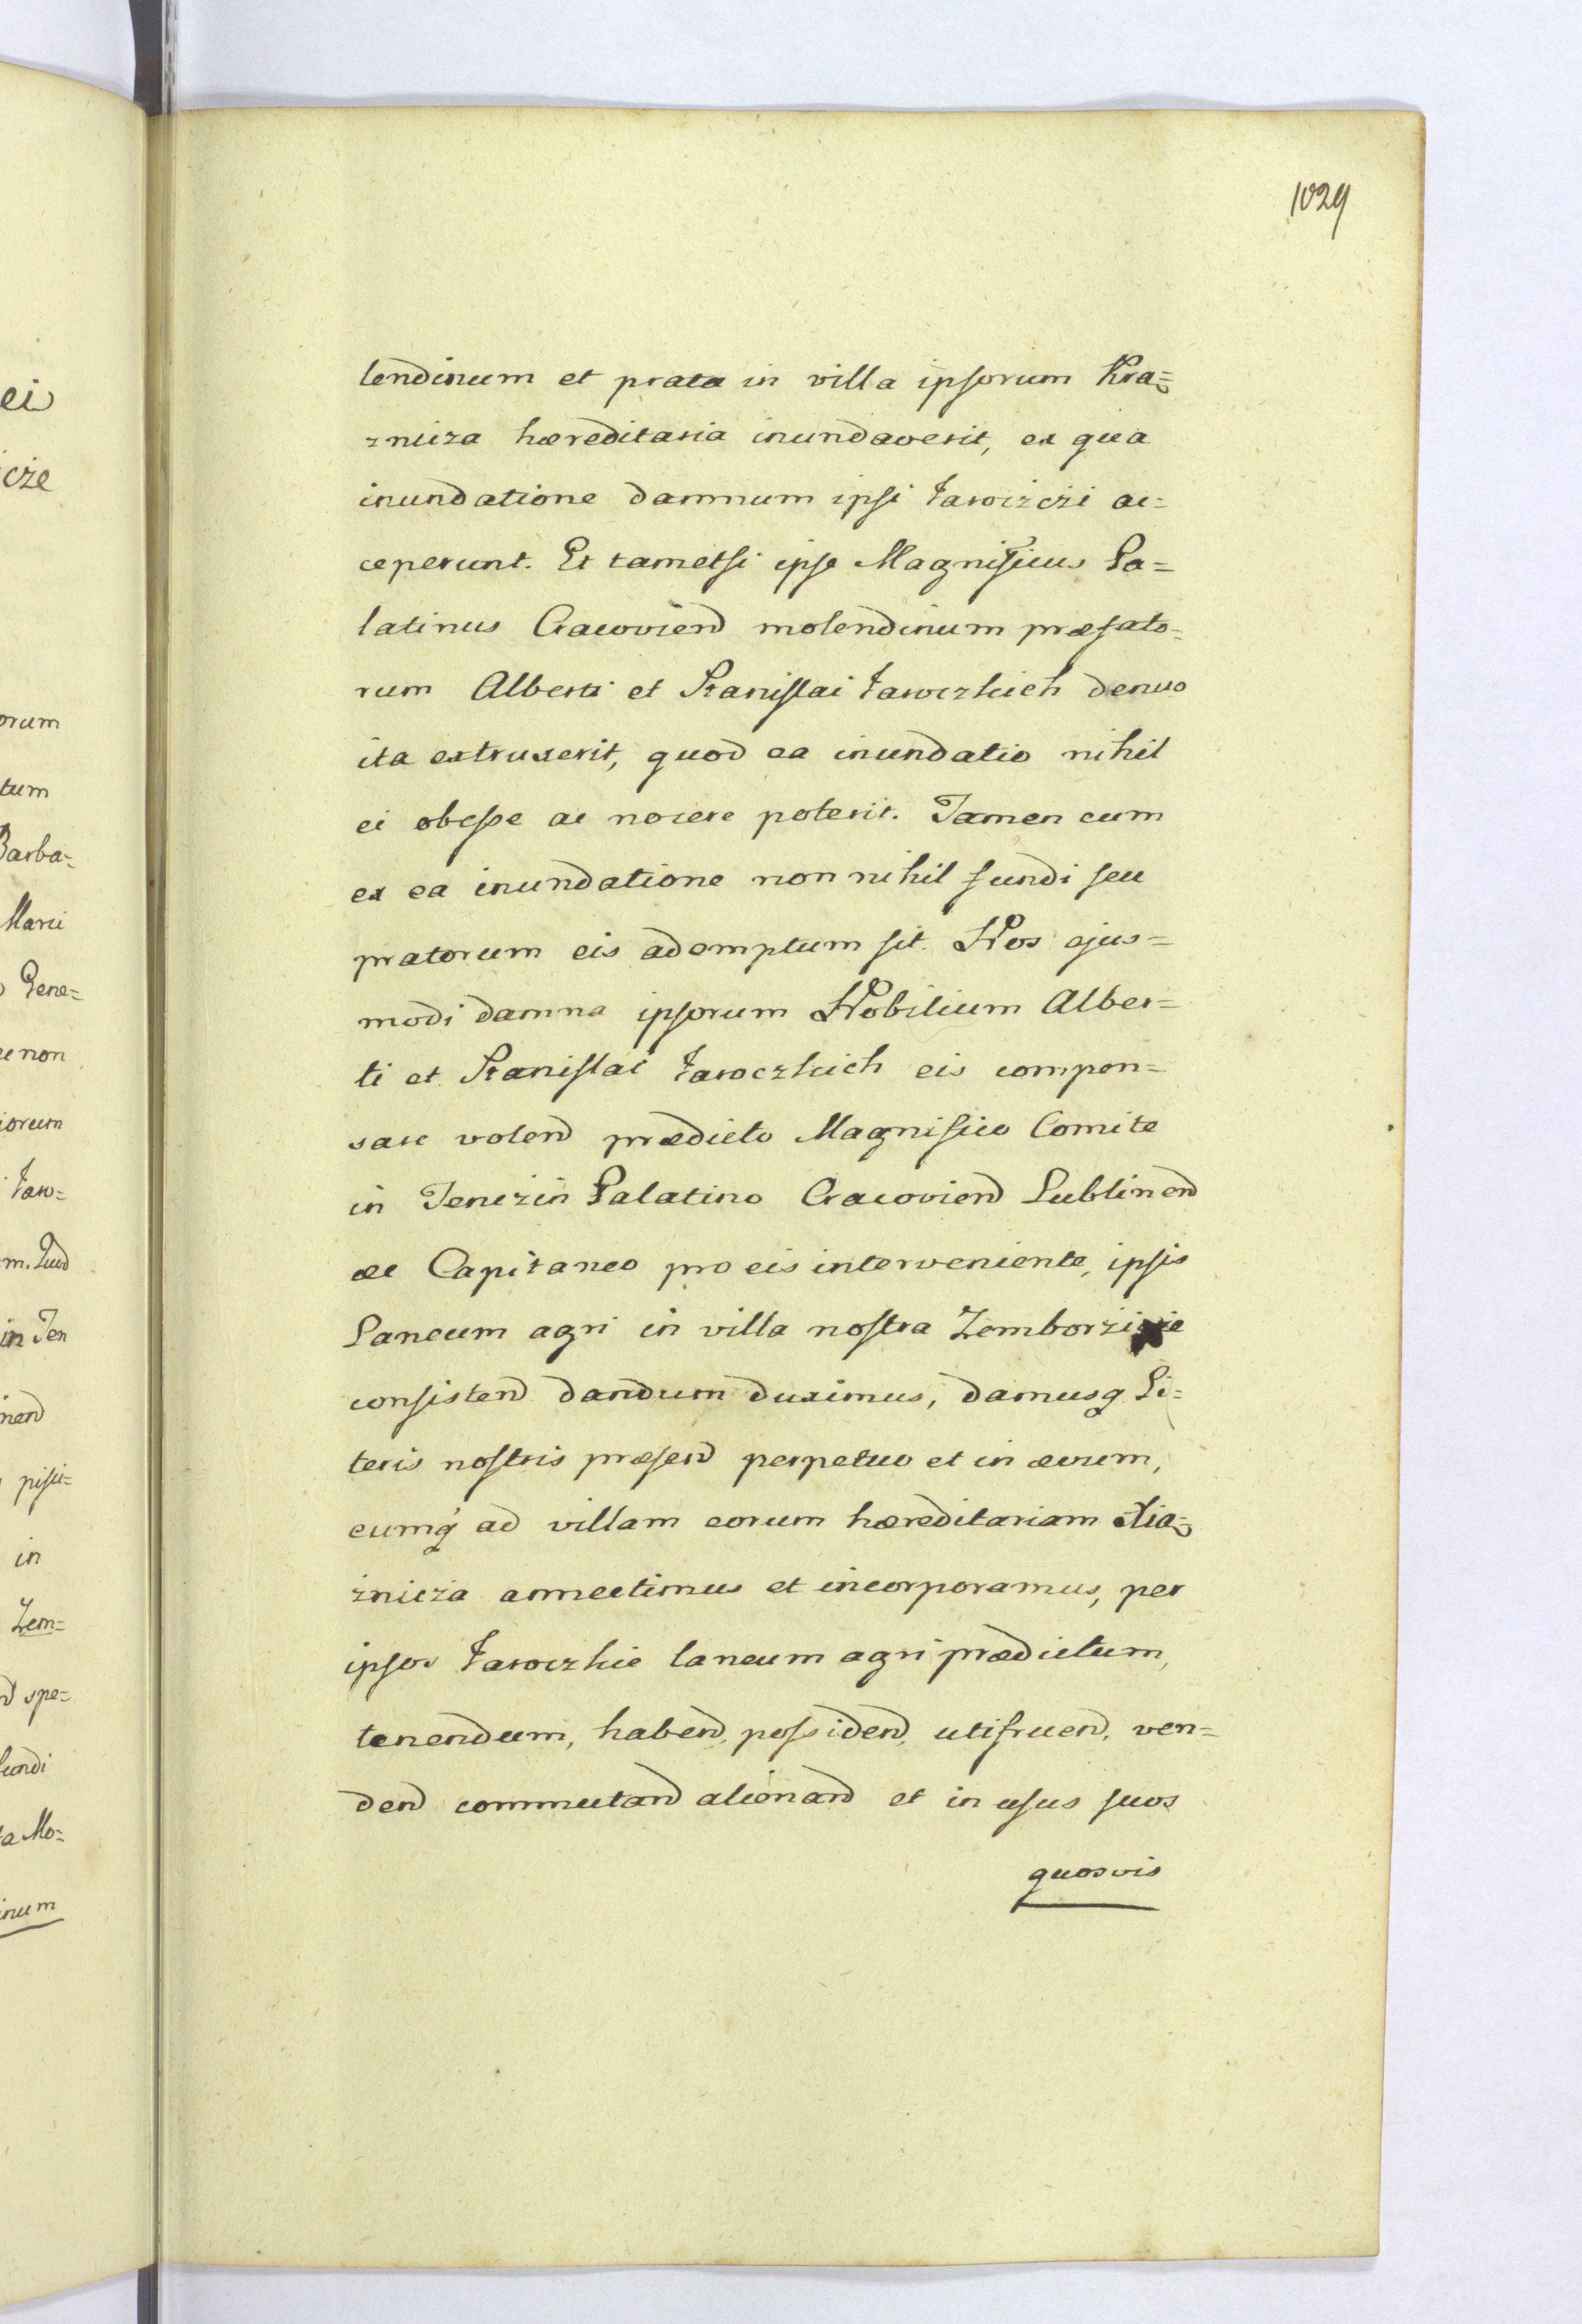 1029
lendinum et prata in villa ipsorum Kra=
znicza hæreditaria inundaverit, ex qua
inundatione damnum ipsi Jawizczi ac=
ceperunt. Et tametsi ipse Magnificus Pa=
latinus Cracoviend molendinum præfato=
rum Alberti et Stanislai Jawczkich denuo
ita extruxerit, quod ea inundatio nihil
ei obesse ac nocere poterit. Tamen cum
ex ea inundatione non nihil fundi seu
pratorum eis ademptum sit. Nos ejus=
modi damna ipsorum Nobilium Alber=
ti et Stanislai Jawczkich eis compen=
sare volend prædicto Magnifico Comite
in Tenczin Palatino Cracoviend Lublinend
ac Capitaneo pro eis interveniente, ipsis
Laneum agri in villa nostra Zemborzicie
consistend dandum duximus, damusq Li=
teris nostris præsend perpetuo et in ævum,
eumq ad villam eorum hæreditariam
znicza annectimus et incorporamus, per
ipsos Jawczkie laneum agri prædictum,
tenendum, habend, possidend, utifruend, ven=
dend commutand alienand et in usus suos
quosvis
ei
cze
orum
tum
Barba=
Marci
Gene=
non
iorum
Jaw=
in Ten
nend
in
Zem=
spe=
fundi
ta Mo=
inum